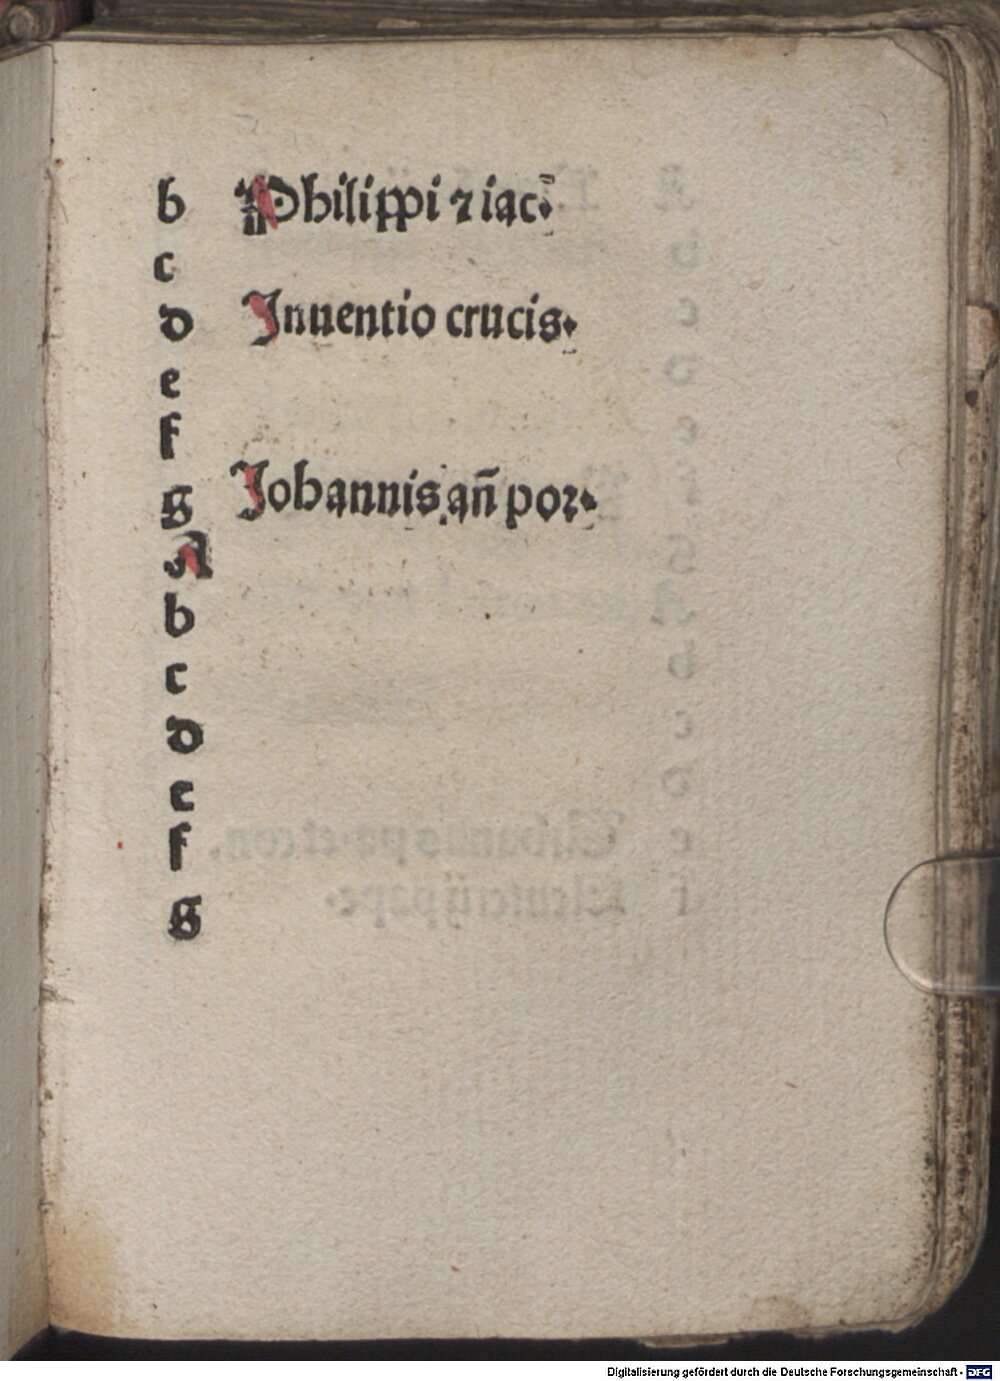 b Philippi ⁊ iac̄.
c
d Inuentio crucis.
e
f
g Johannis an̄ por.
A
b
c
d
e
f
g
Digitalisierung gefördert durch die Deutsche Forschungsgemeinschaft - DFG